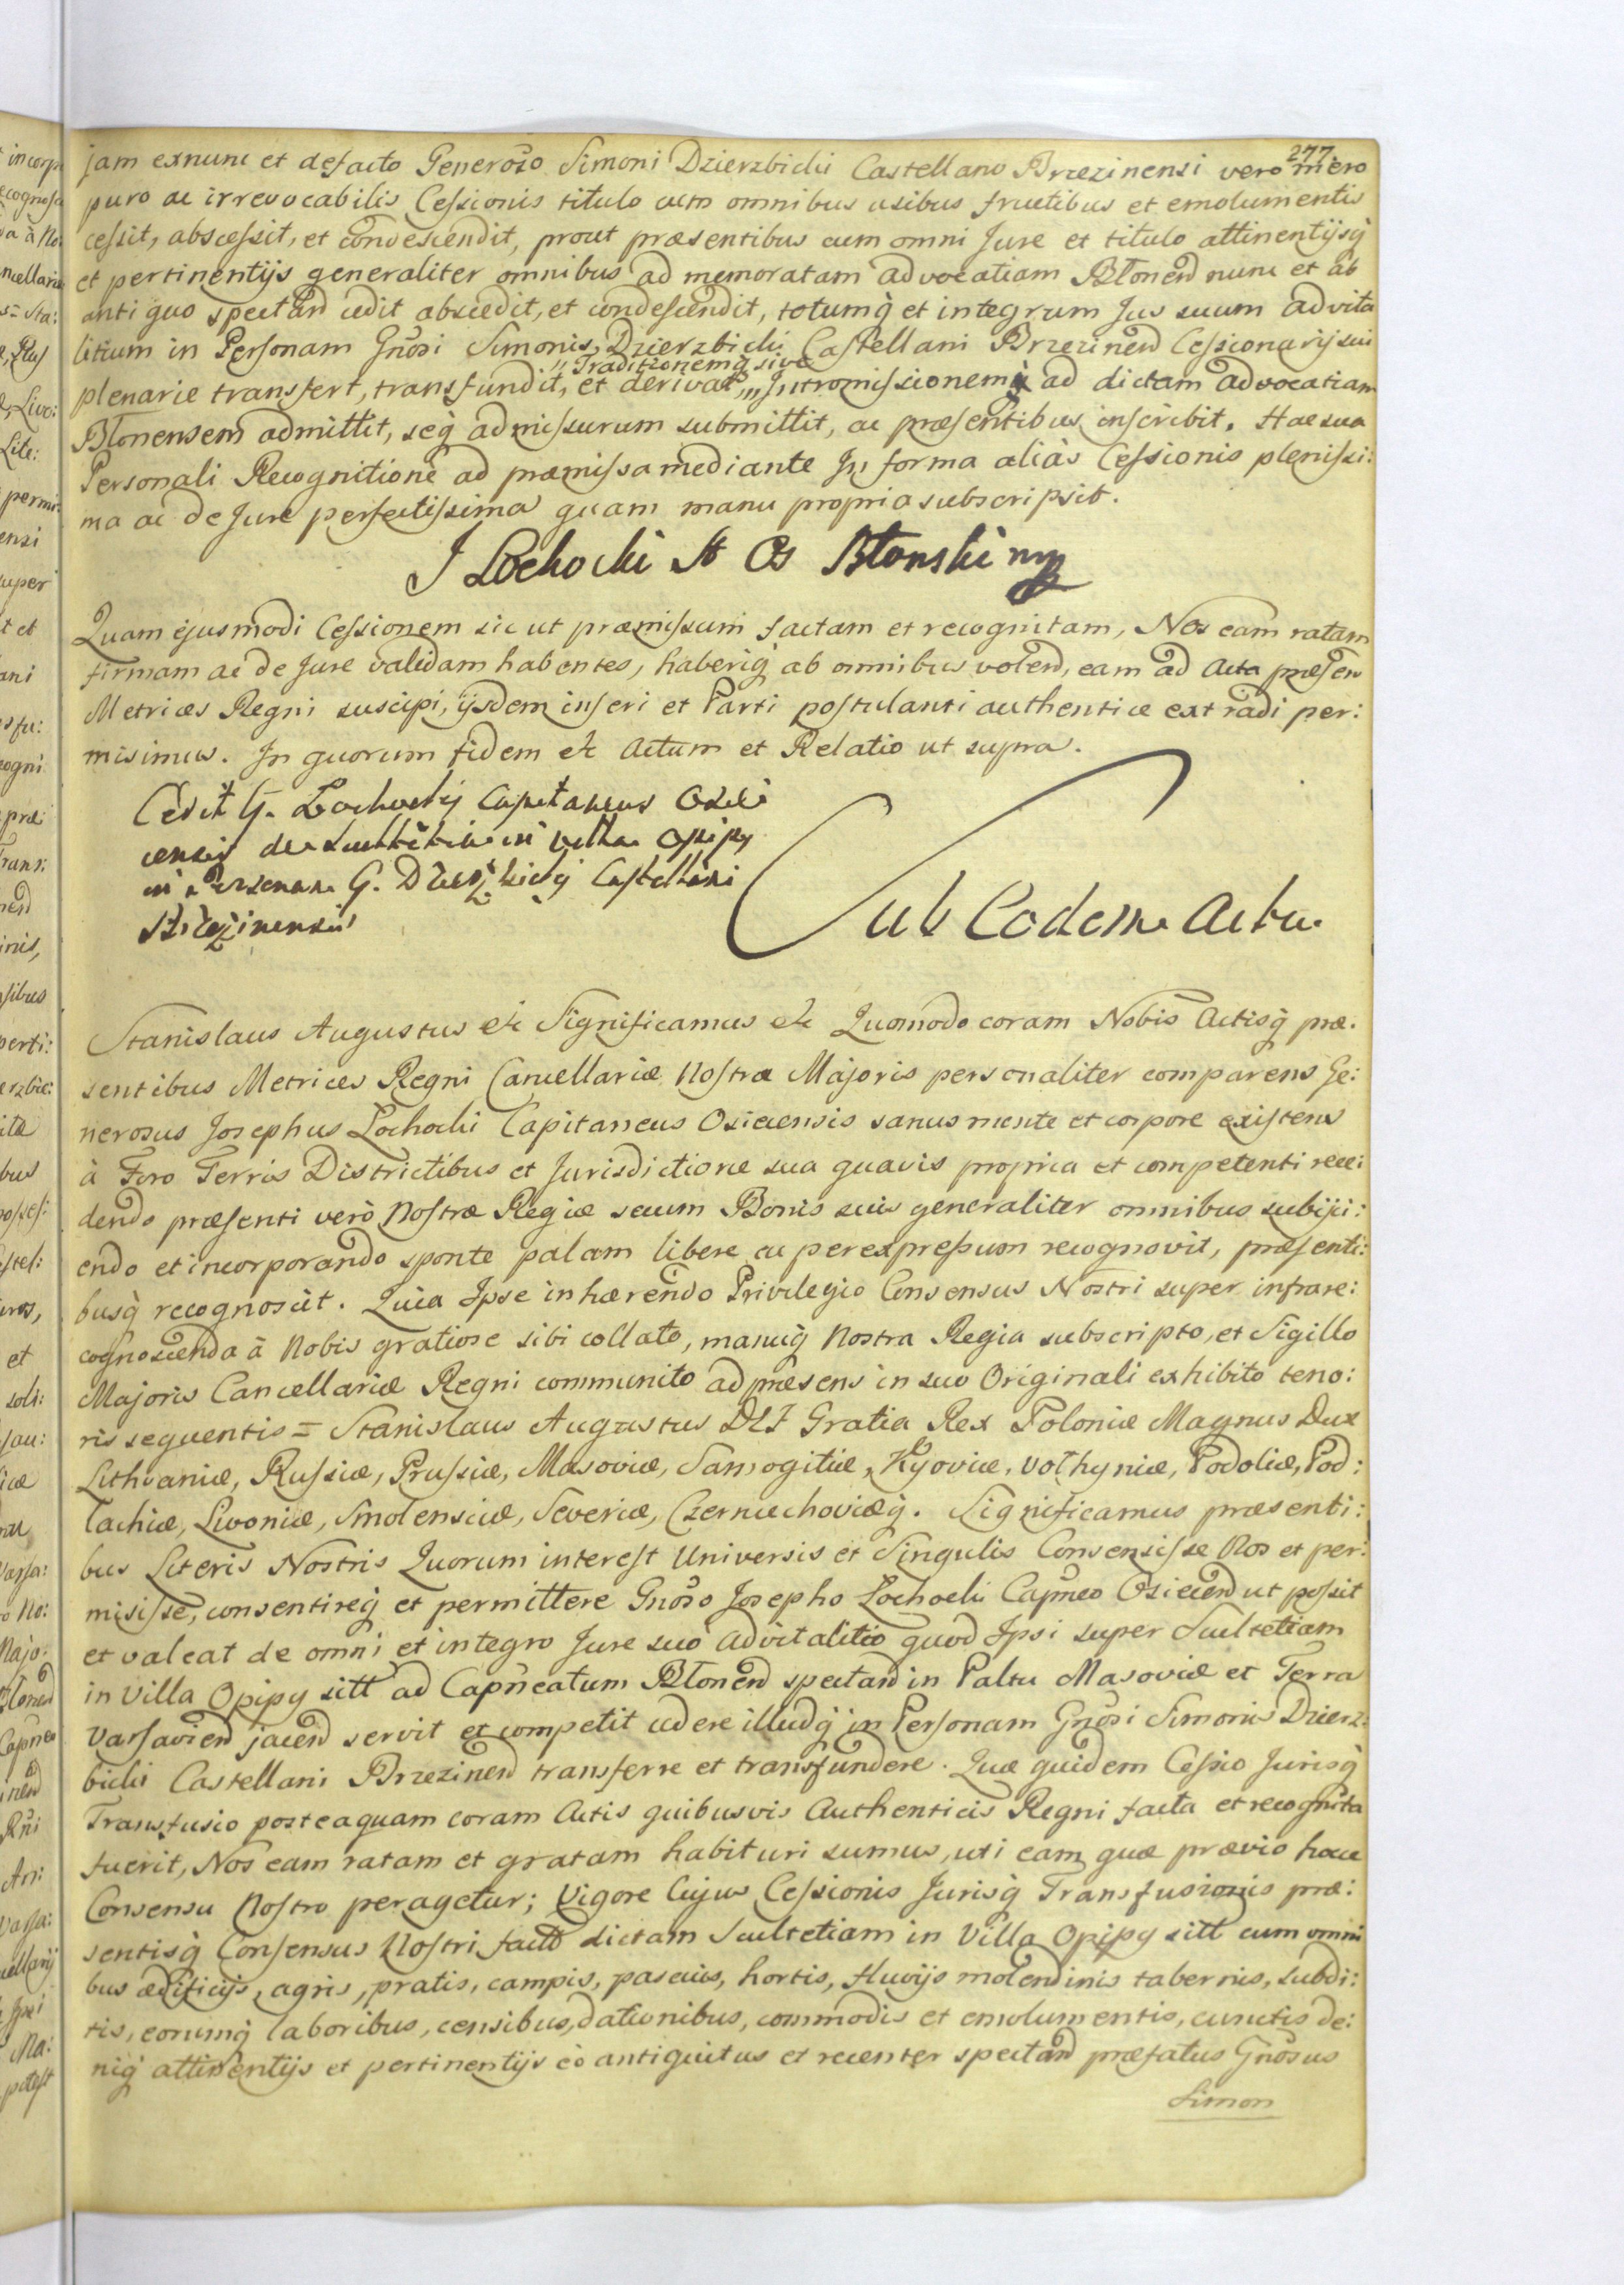 277.
jam exnunc et defacto Generoso Simoni Dzierzbicki Castellano Brzezinensi vero mero
puro ac irrevocabilis Cessionis titulo cum omnibus usibus fructibus et emolumentis
cessit, abscessit, et condescendit, prout præsentibus cum omni Jure et titulo attinentijsq̀
et pertinentijs generaliter omnibus ad memoratam advocatiam Błonen̄ nunc et ab
antiquo spectan̄ cedit abscedit, et condescendit, totumq̀ et integrum Jus suum advita
litium in Personam Gn̄osi Simonis Dzierzbicki Castellani Brzezinen̄ Cessionarij sui
„Traditionemq̀ sive
plenarie transfert, transfundit, et derivat „„Intromissionem ad dictam advocatiam
Błonensem admittit, seq̀ admissurum submittit, ac præsentibus inscribit. Hac sua
Personali Recognitione ad præmissa mediante In forma aliàs Cessionis plenissi:
ma ac de Jure perfectissima quam manu propria subscripsit.
J Łochocki St Os Błonski mp
Quam ejusmodi Cessionem sic ut præmissum factam et recognitam, Nos eam ratam
firmam ac de Jure validam habentes, haberiq̀ ab omnibus volen̄, eam ad Acta præsen̄
Metrices Regni suscipi, ijsdem inseri et Parti postulanti authentice extradi per:
misimus. In quorum fidem etc Actum et Relatio ut supra.
Cedit G. Łochocky Capitaneus Osie
censis de Scultetia in villa Opipy
in Personam G. Dzierzbicky Castellani
Brzezinensis
Sub Eodem Actu.
Stanislaus Augustus etc Significamus etc Quomodo coram Nobis Actisq̀ præ.
sentibus Metrices Regni Cancellariæ Nostræ Majoris personaliter comparens Ge:
nerosus Josephus Łochocki Capitaneus Osiecensis sanus mente et corpore existens
à Foro Terris Districtibus et Jurisdictione sua quavis propria et competenti rece:
dendo præsenti verò Nostræ Regiæ secum Bonis suis generaliter omnibus subiici:
endo et incorporando sponte palam libere ac per expressum recognovit, præsenti:
busq̀ recognoscit. Quia Ipse inhærendo Privilegio Consensus Nostri super infrare:
cognoscenda à Nobis gratiose sibi collato, manuq̀ Nostra Regia subscripto, et Sigillo
Majoris Cancellariæ Regni communito ad præsens in suo Originali exhibito teno:
ris sequentis = Stanislaus Augustus DEI Gratia Rex Poloniæ Magnus Dux
Lithvaniæ, Russiæ, Prussiæ, Masoviæ, Samogitiæ, Kyoviæ, Vołhyniæ, Podoliæ, Pod:
lachiæ, Livoniæ, Smolensciæ, Severiæ, Czerniechoviæq̀. Significamus præsenti:
bus Literis Nostris Quorum interest Universis et Singulis Consensisse Nos et per:
misisse, consentireq̀ et permittere Gn̄oso Josepho Łochocki Capn̄eo Osiecen̄ ut possit
et valeat de omni et integro Jure suo advitalitio quod Ipsi super Scultetiam
in Villa Opipy sitt ad Capn̄eatum Błonen̄ spectan̄ in Paltu Masoviæ et Terra
Varsavien̄ jacen̄ servit et competit cedere illudq̀ in Personam Gn̄osi Simonis Dzierz:
bicki Castellani Brzezinen̄ transferre et transfundere. Quæ quidem Cessio Jurisq̀
Transfusio posteaquam coram Actis quibusvis Authenticis Regni facta et recognita
fuerit, Nos eam ratam et gratam habituri sumus, uti eam quæ prævio hocce
Consensu Nostro peragetur; Vigore Cujus Cessionis Jurisq̀ Transfusionis præ:
sentisq̀ Consensus Nostri facto dictam Scultetiam in Villa Opipy sitt cum omni
bus ædificijs, agris, pratis, campis, pascuis, hortis, fluvijs molendinis tabernis, subdi:
tis, eorumq̀ laboribus, censibus, dationibus, commodis et emolumentis, cunctis de:
niq̀ attinentijs et pertinentijs eò antiquitus et recenter spectan̄ præfatus Gn̄osus
Simon